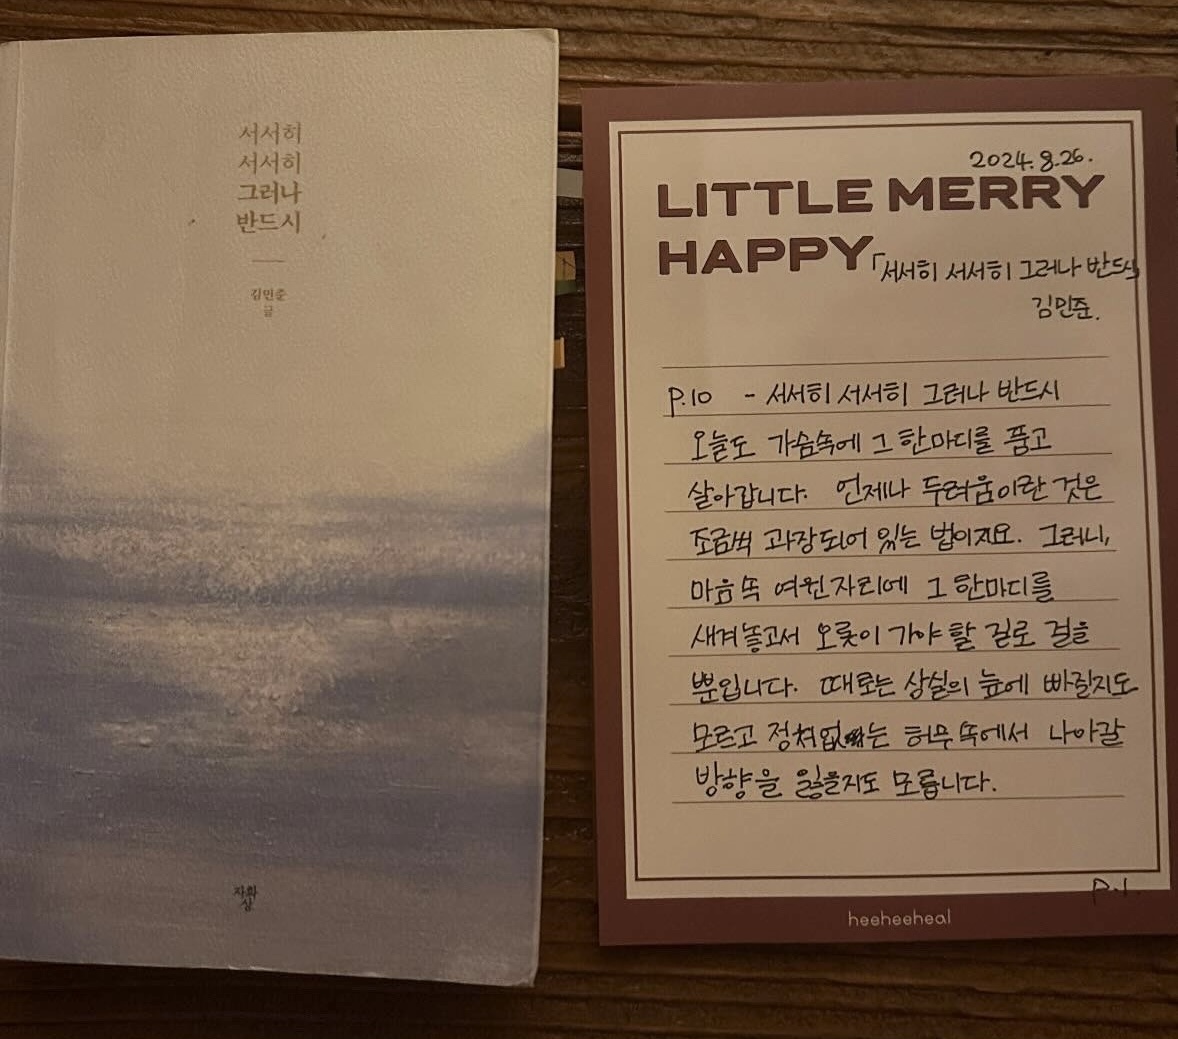 서서히
서서히
그러나
반드시
김민준
글
자화
상
2024.8.26.
LITTLE MERRY
HAPPY
「서서히 서서히 그러나 반드시」
김민준.
P.10 - 서서히 서서히 그러나 반드시
오늘도 가슴속에 그 한마디를 품고
살아갑니다. 언제나 두려움이란 것은
조금씩 과장되어 있는 법이지요. 그러니,
마음 속 여윈 자리에 그 한마디를
새겨놓고서 오롯이 가야 할 길로 걸을
뿐입니다. 때로는 상실의 늪에 빠질지도
모르고 정처없는 허무 속에서 나아갈
방향을 잃을지도 모릅니다.
P.1
heeheeheal